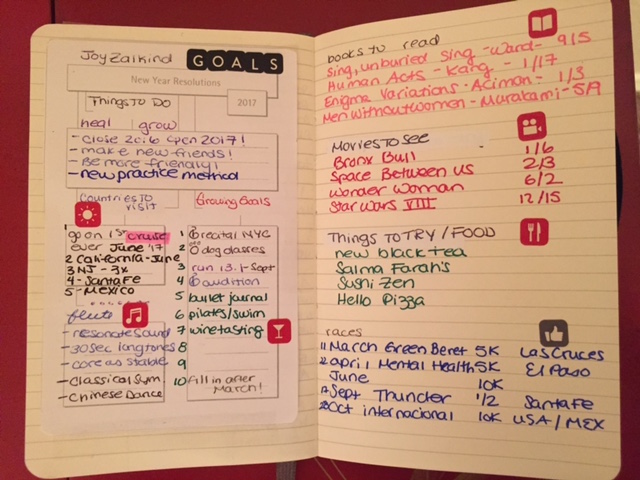 Joy Zalkind GOALS
New Year Resolutions
2017
Things To Do
heal grow
- close 2016 open 2017!
- make new friends!
- Be more friendly!
- new practice method
Countries To visit
Growing Goals
1 go on 1st cruise
ever June '17
2 California-June
3 NJ - 3x
4 - Santa Fe
5 - Mexico
flute
- resonate sound
- 30 sec longtones
- core as stable
- Classical Sym.
- Chinese Dance
1 recital NYC
2 dog classes
3 run 13.1 - Sept
4 audition
5 bullet journal
6 pilates/swim
7 wine tasting
8
9
10 fill in after
March!
books to read
Sing, unburied sing - Ward - 9/5
Human Acts - Kang - 1/17
Enigma Variations - Aciman - 1/3
Men without women - Murakami - 5/9
Movies to see
Bronx Bull 1/6
Space Between us 2/3
Wonder Woman 6/2
Star Wars VIII 12/15
Things To TRY / FOOD
new black tea
Salma Farah's
Sushi Zen
Hello Pizza
races
11 March Green Beret 5K Las Cruces
22 april Mental Health 5K El Paso
June 10K
Sept Thunder 1/2 Santa Fe
Oct internacional 10K USA / MEX